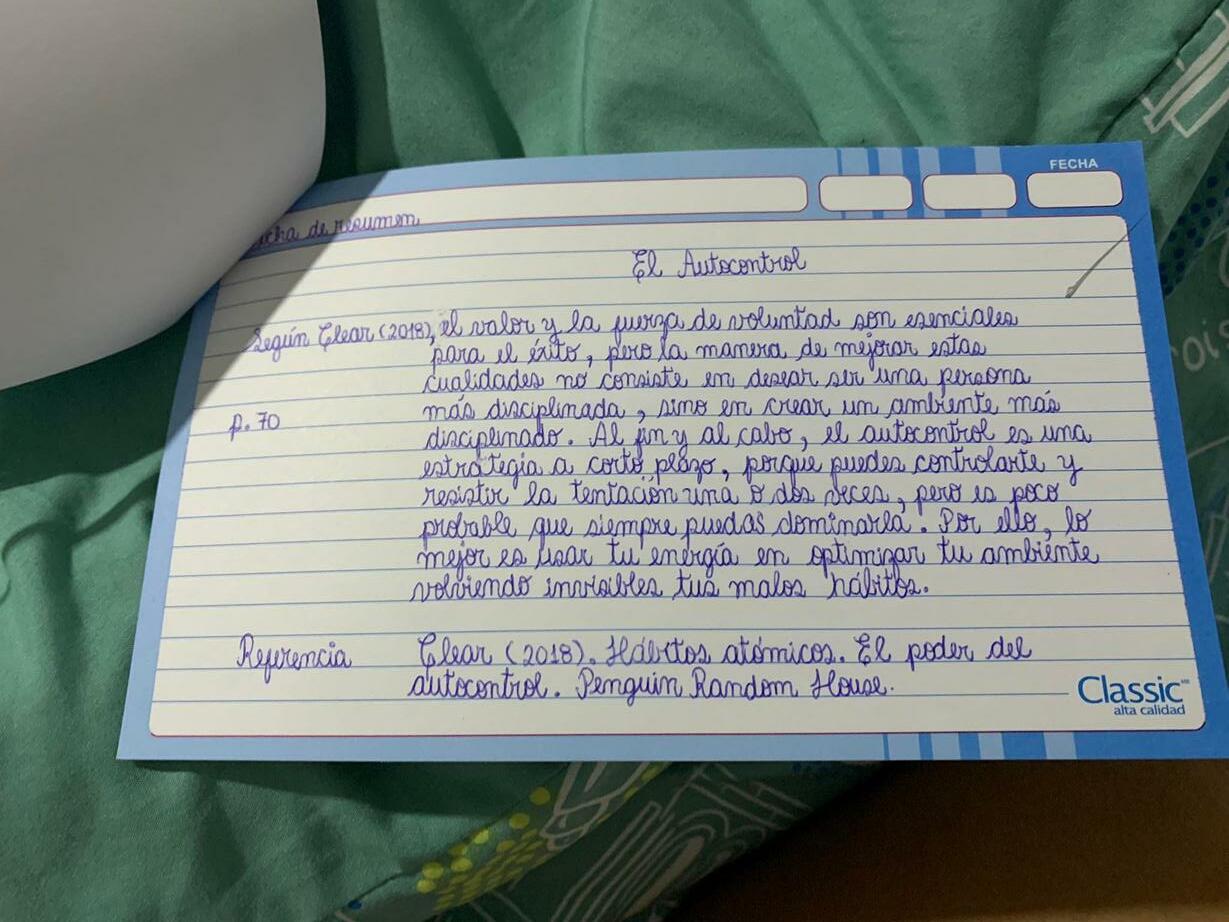 FECHA
Ficha de resumen
El Autocontrol
Según Clear (2018), el valor y la fuerza de voluntad son esenciales
para el éxito, pero la manera de mejorar estas
cualidades no consiste en desear ser una persona
p. 70 más disciplinada, sino en crear un ambiente más
disciplinado. Al fin y al cabo, el autocontrol es una
estrategia a corto plazo, porque puedes controlarte y
resistir la tentación una o dos veces, pero es poco
probable que siempre puedas dominarla. Por ello, lo
mejor es usar tu energía en optimizar tu ambiente
volviendo invisibles tus malos hábitos.
Referencia Clear (2018). Hábitos atómicos. El poder del
autocontrol. Penguin Random House.
Classic
alta calidad